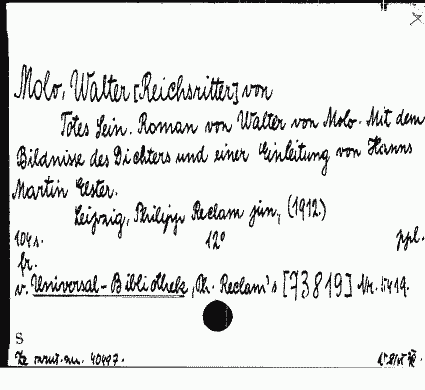 Molo, Walter [Reichsritter] von
Totes Sein. Roman von Walter von Molo. Mit dem
Bildnisse des Dichters und einer Einleitung von Hanns
Martin Elster.
Leipzig, Philipp Reclam jun., (1912.)
104 s. 12° ppl.
fr.
v. Universal-Bibliothek, Ph. Reclam's [73819] Nr. 5414.
S
40497.